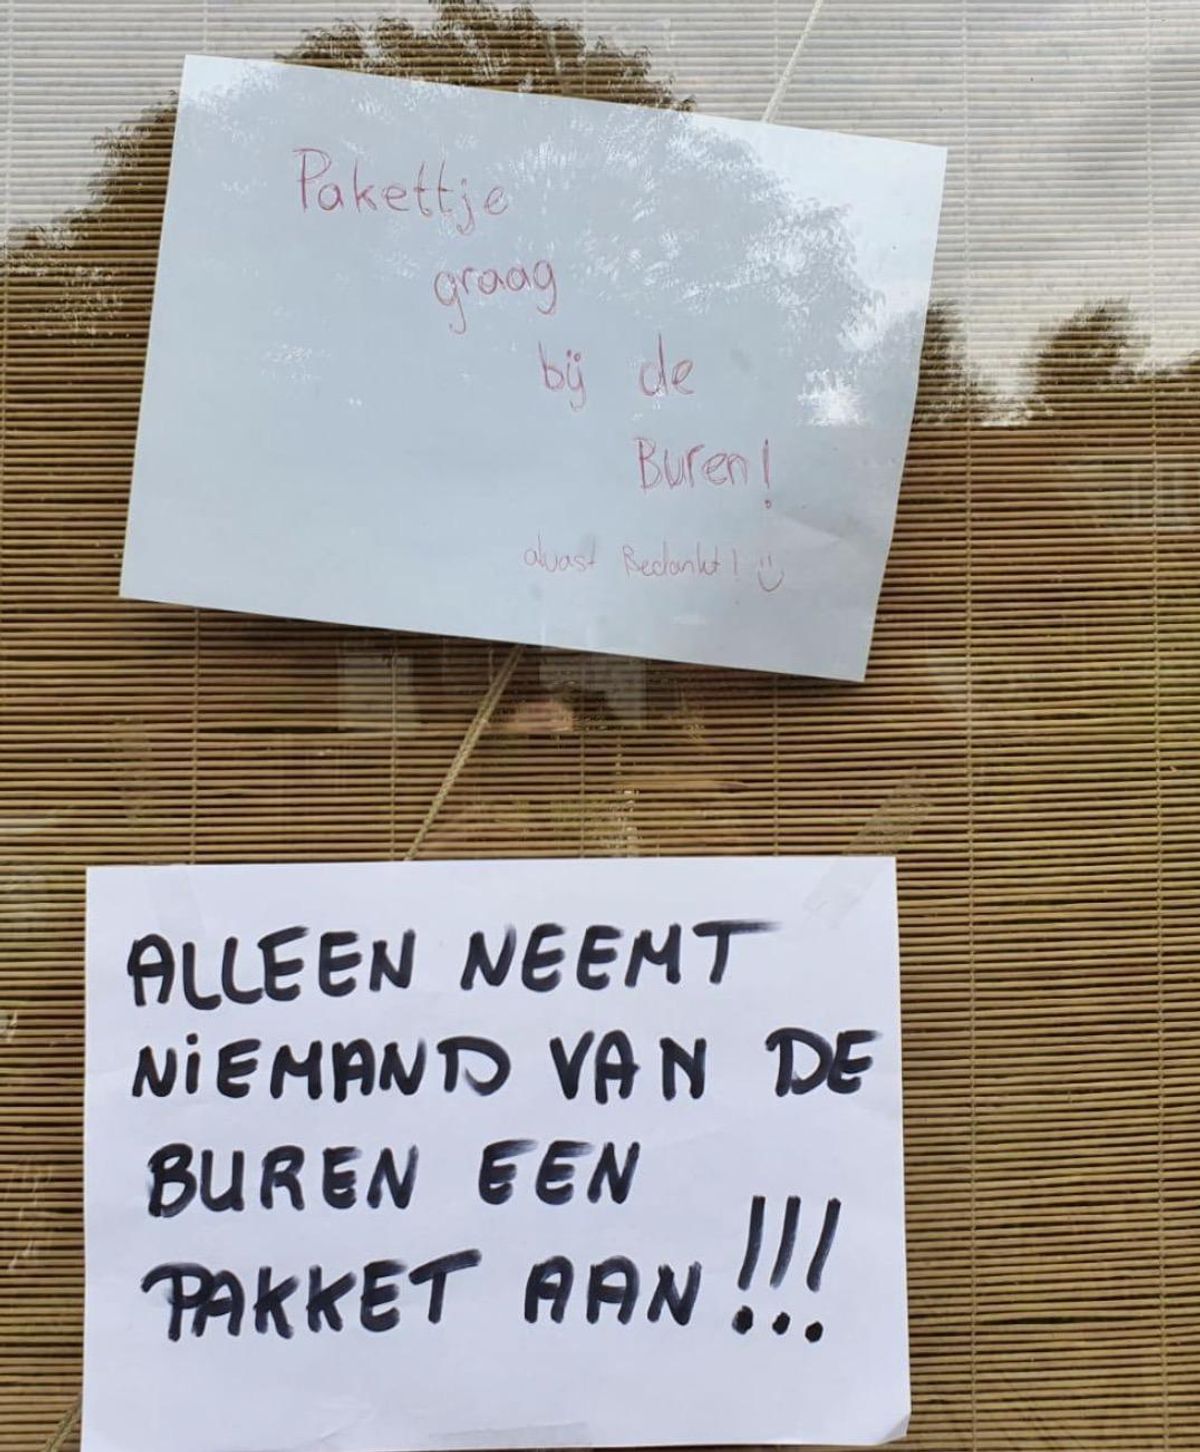 Pakettje
graag
bij de
Buren!
alvast Bedankt!
ALLEEN NEEMT
NiEMAND VAN DE
BUREN EEN
PAKKET AAN!!!